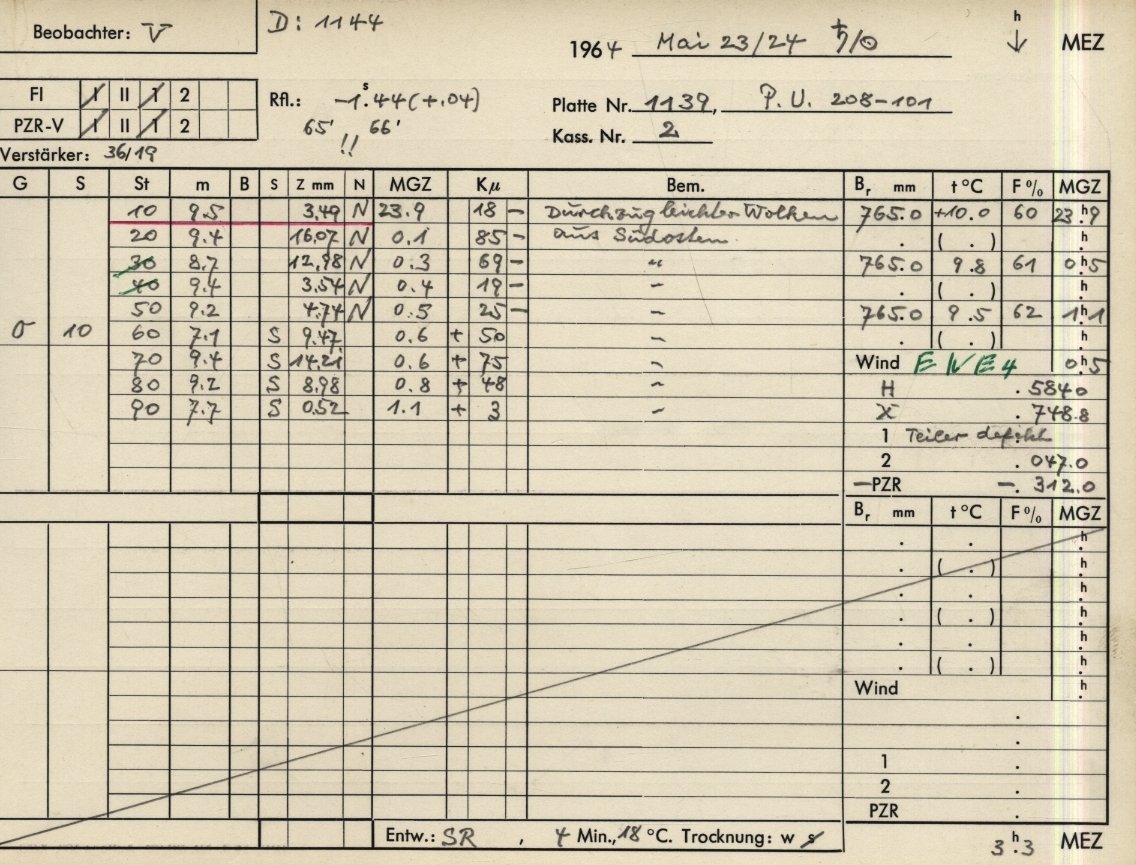 Beobachter: V
D: 1144
1964 Mai 23/24 ♄/0
h
↓ MEZ
FI I II 1 2
PZR-V I II 1 2
Rfl.: -1ˢ.44(+.04)
65' 66'
!!
Platte Nr. 1139, P.U. 208-101
Kass. Nr. 2
Verstärker: 36/19
G S St m B S Z mm N MGZ Kμ Bem.
10 9.5 3.49 N 23.9 18 - Durchzug leichter Wolken
20 9.4 16.07 N 0.1 85 - aus Südosten
30 8.7 12.98 N 0.3 69 - "
40 9.4 3.54 N 0.4 19 - "
50 9.2 4.74 N 0.5 25 - "
σ 10 60 7.1 S 9.47 0.6 + 50 "
70 9.4 S 14.21 0.6 + 75 "
80 9.2 S 8.98 0.8 + 48 "
90 7.7 S 0.52 1.1 + 3 "
Br mm t °C F % MGZ
765.0 +10.0 60 23ʰ.9
. ( . ) ʰ.
765.0 9.8 61 0ʰ.5
. ( . ) ʰ.
765.0 9.5 62 1ʰ.1
. ( . ) ʰ.
Wind E NE 4 0ʰ.5
H . 5840
X . 748.8
1 Teiler defekt
2 . 047.0
-PZR -. 312.0
Br mm t °C F % MGZ
. . ʰ.
. ( . ) ʰ.
. . ʰ.
. ( . ) ʰ.
. . ʰ.
. ( . ) ʰ.
Wind ʰ.
.
.
1 .
2 .
PZR .
Entw.: SR , 4 Min., 18 °C. Trocknung: w s
3ʰ.3 MEZ